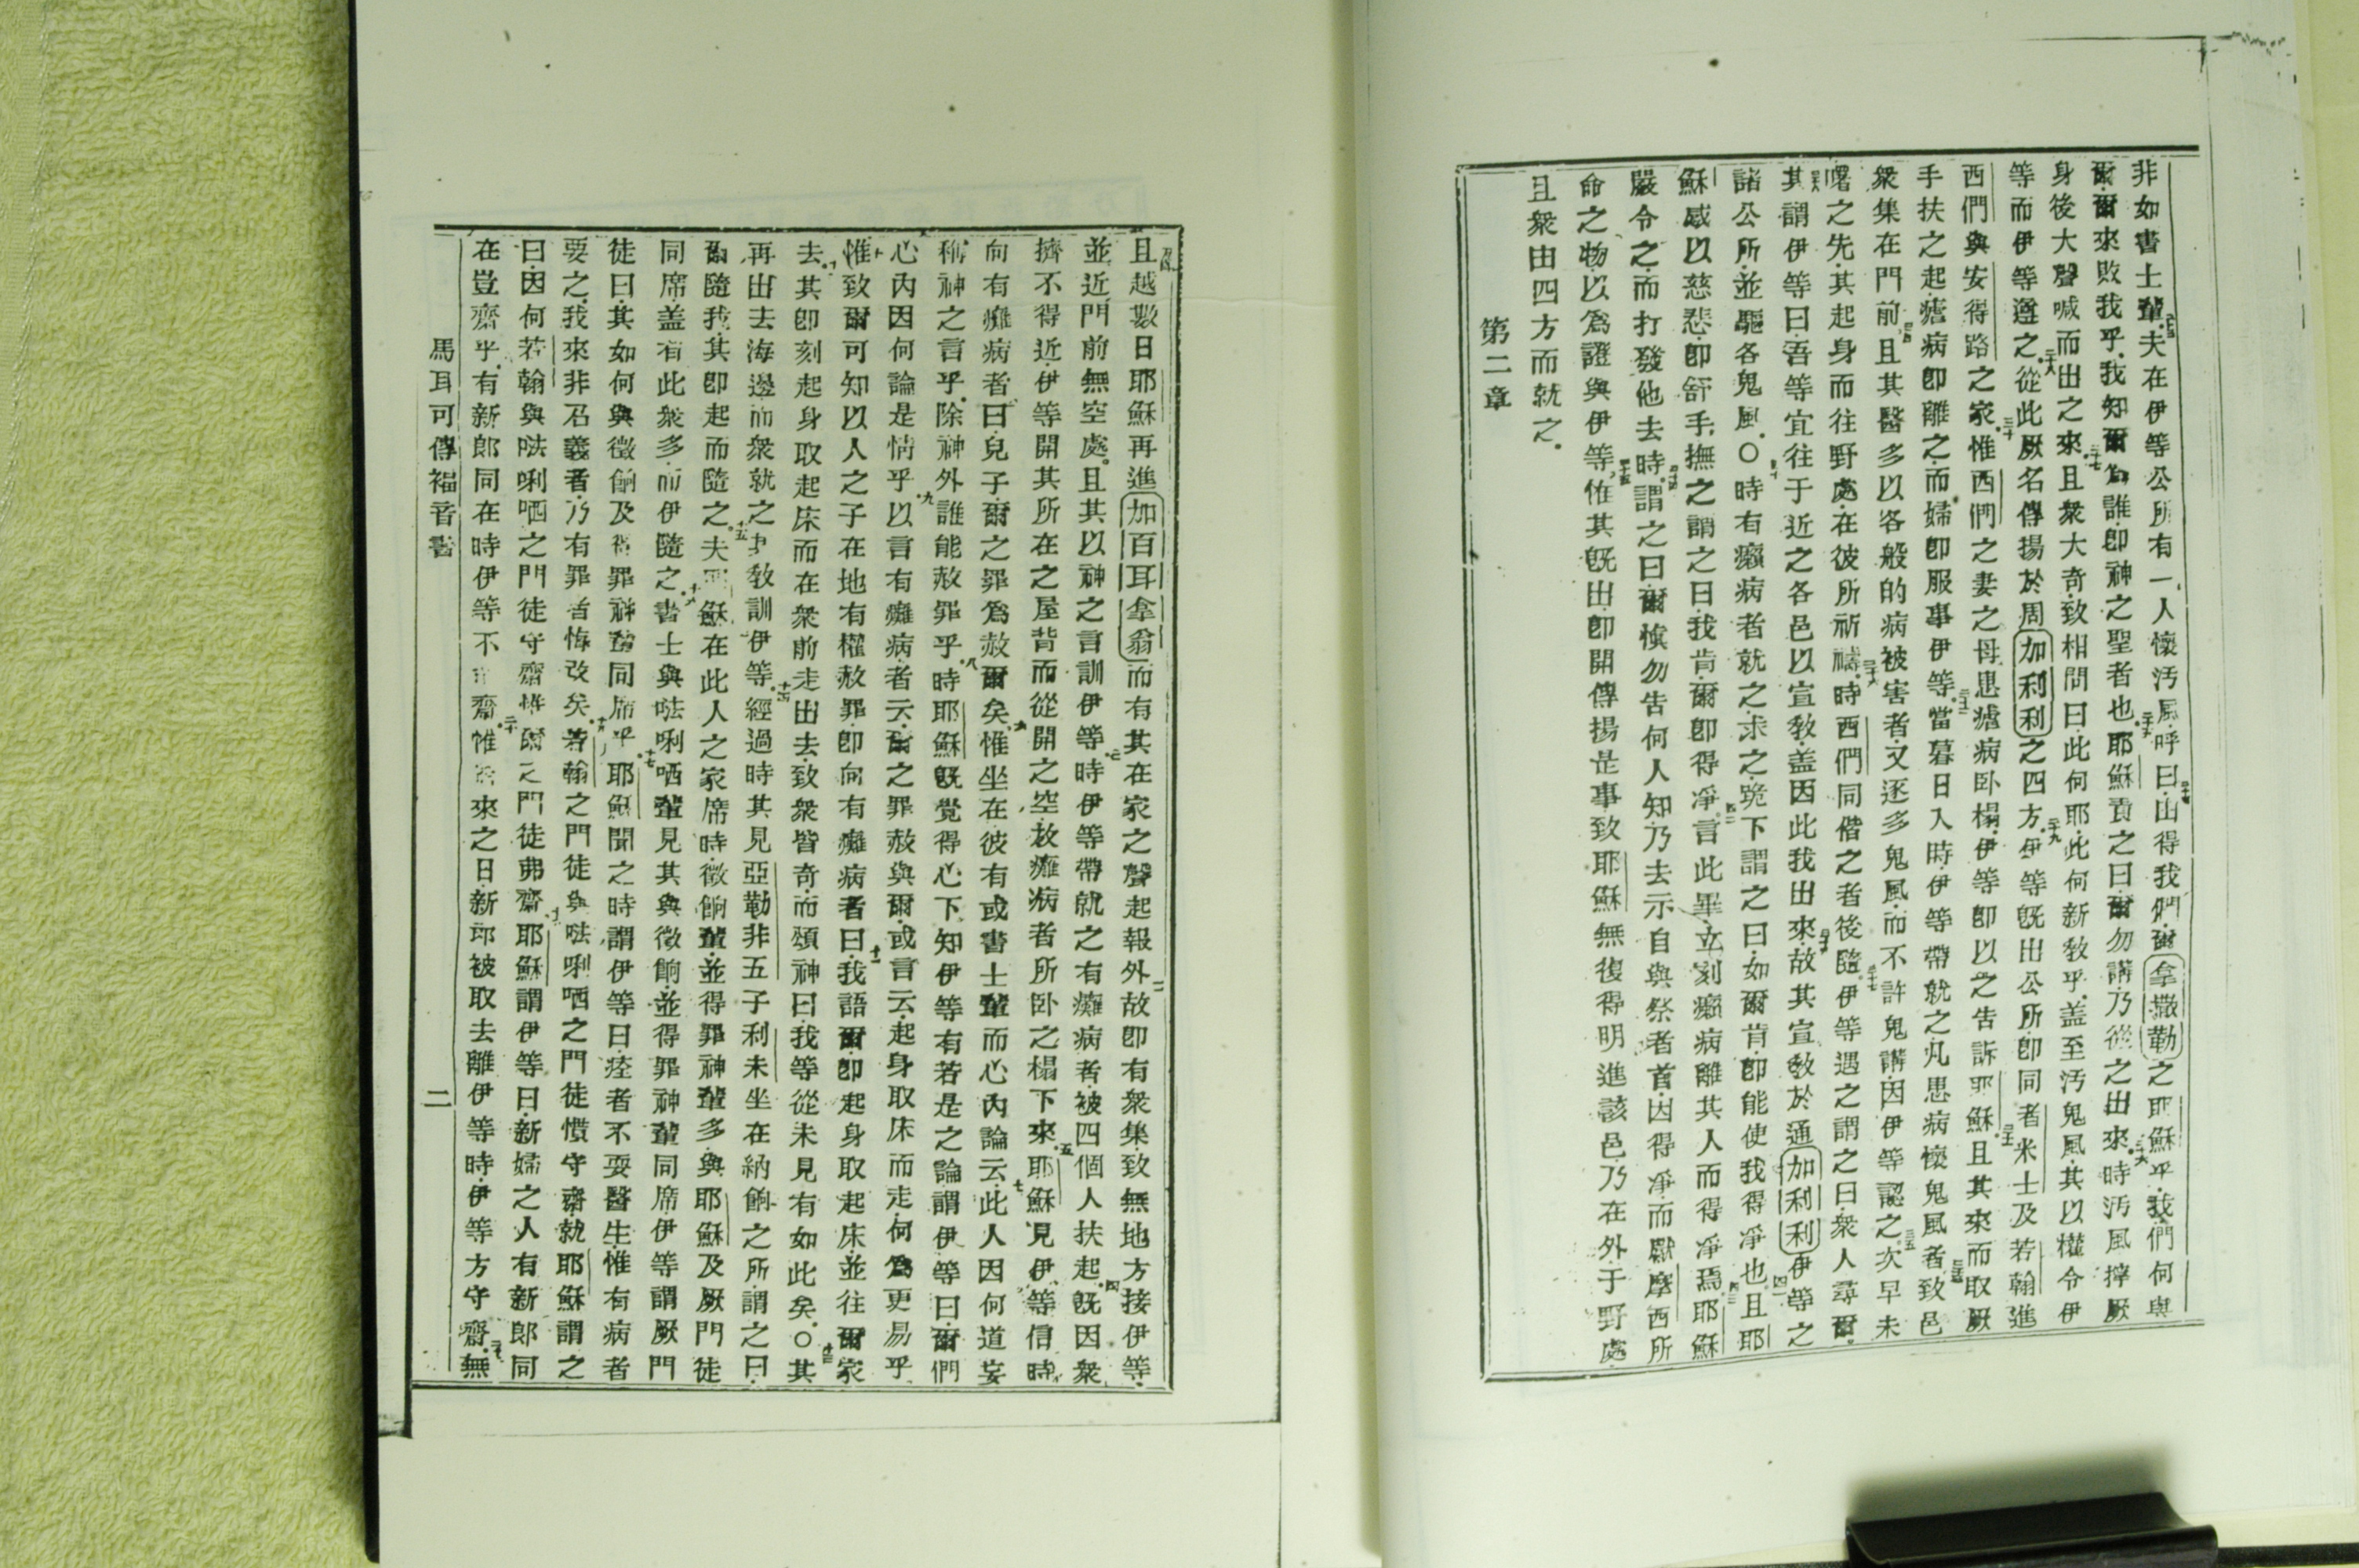 非如書士輩夫在伊等公所有一人懷汚風呼曰由得我們爾拿撒勒之耶穌乎我們何與
爾爾來敗我乎我知爾為誰卽神之聖者也耶穌責之曰爾勿講乃從之出來時汚風摔厥
身後大聲喊而出之來且衆大奇致相問曰此何耶此何新敎乎盖至汚鬼風其以權令伊
等而伊等遵之從此厥名傳揚於周加利利之四方伊等旣出公所卽同者米士及若翰進
西們與安得路之家惟西們之妻之母患瘧病卧榻伊等卽以之告訴耶穌且其來而取厥
手扶之起瘧病卽離之而婦卽服事伊等當暮日入時伊等帶就之凡患病懷鬼風者致邑
衆集在門前且其醫多以各般的病被害者又逐多鬼風而不許鬼講因伊等認之次早未
曙之先其起身而往野處在彼所祈禱時西們同偕之者後隨伊等遇之謂之曰衆人尋爾
其謂伊等曰吾等宜往于近之各邑以宣敎盖因此我出來故其宣敎於通加利利伊等之
諸公所並驅各鬼風〇時有癩病者就之求之跪下謂之曰如爾肯卽能使我得凈也且耶
穌感以慈悲卽舒手撫之謂之曰我肯爾卽得凈言此畢立刻癩病離其人而得凈焉耶穌
嚴令之而打發他去時謂之曰爾愼勿告何人知乃去示自與祭者首因得凈而獻摩西所
命之物以爲證與伊等惟其旣出卽開傳揚是事致耶穌無復得明進該邑乃在外于野處
且衆由四方而就之
第二章
且越數日耶穌再進加百耳拿翁而有其在家之聲起報外故卽有衆集致無地方接伊等
並近門前無空處且其以神之言訓伊等時伊等帶就之有癱病者被四個人扶起旣因衆
擠不得近伊等開其所在之屋背而從開之空放癱病者所卧之榻下來耶穌見伊等信時
向有癱病者曰兒子爾之罪爲赦爾矣惟坐在彼有或書士輩而心內論云此人因何道妄
稱神之言乎除神外誰能赦罪乎時耶穌旣覺得心下知伊等有若是之論謂伊等曰爾們
心內因何論是情乎以言有癱病者云爾之罪赦與爾或言云起身取床而走何爲更易乎
惟致爾可知以人之子在地有權赦罪卽向有癱病者曰我語爾卽起身取起床並往爾家
去其卽刻起身取起床而在衆前走出去致衆皆奇而頌神曰我等從未見有如此矣〇其
再出去海邊而衆就之其敎訓伊等經過時其見亞勒非五子利未坐在納餉之所謂之曰
爾隨我其卽起而隨之夫耶穌在此人之家席時徵餉輩並得罪神輩多與耶穌及厥門徒
同席盖有此衆多而伊隨之書士與𠵽唎哂輩見其與徵餉並得罪神輩同席伊等謂厥門
徒曰其如何與徵餉及得罪神輩同席乎耶穌聞之時謂伊等曰痊者不要醫生惟有病者
要之我來非召義者乃有罪者悔改矣若翰之門徒與𠵽唎哂之門徒慣守齋就耶穌謂之
曰因何若翰與𠵽唎哂之門徒守齋惟爾之門徒弗齋耶穌謂伊等曰新婦之人有新郎同
在豈齋乎有新郎同在時伊等不 齋惟 來之日新郎被取去離伊等時伊等方守齋無
馬耳可傳福音書
二